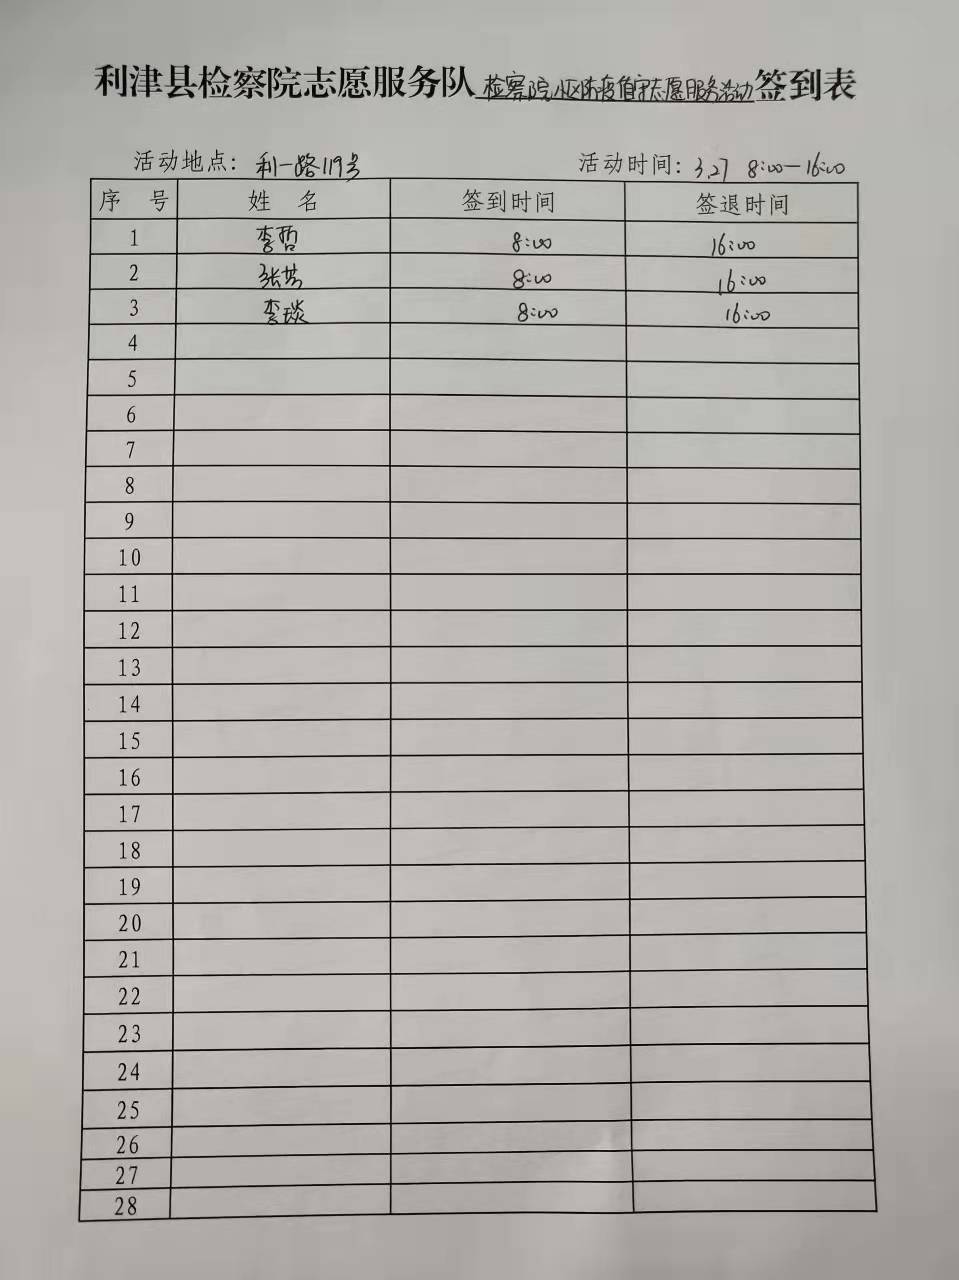 利津县检察院志愿服务队检察院小区防疫值守志愿服务活动签到表
活动地点：利一路119号 活动时间：3.27 8:00-16:00
序 号 姓 名 签到时间 签退时间
1 李哲 8:00 16:00
2 张 8:00 16:00
3 李琰 8:00 16:00
4
5
6
7
8
9
10
11
12
13
14
15
16
17
18
19
20
21
22
23
24
25
26
27
28